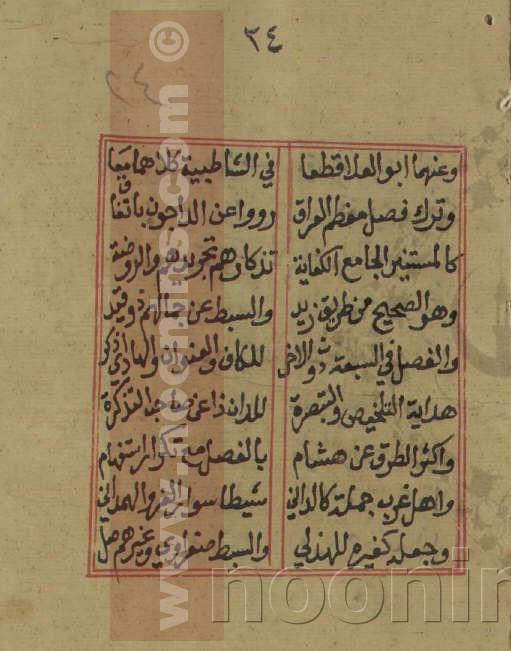 ٢٤
٢٤
وعنهما ابو العلا قطعا في الشاطبية كلاهما معا
وترك فصل معظم العراق رووا عن الداجون باتفاق
كالمستنير الجامع الكفاية تذكارهم تجريدهم والروضة
وهو الصحيح من طريق زيد والسبط عن جمالهم ذو قيد
والفصل في السبعة ذو الاخر للكافي والعنوان والهادي ذكر
هداية التلخيص والتبصرة للمدان ذا عن صاحب التذكرة
واكثر الطرق عن هشام بالفصل مع تكرار استفهام
واهل غرب جملة كالداني شيطا سوار الغر والهمداني
وجعله كغيره للهذلي والسبط صفراوي وغيرهم صل
www.ntoomic.com ©
noonin